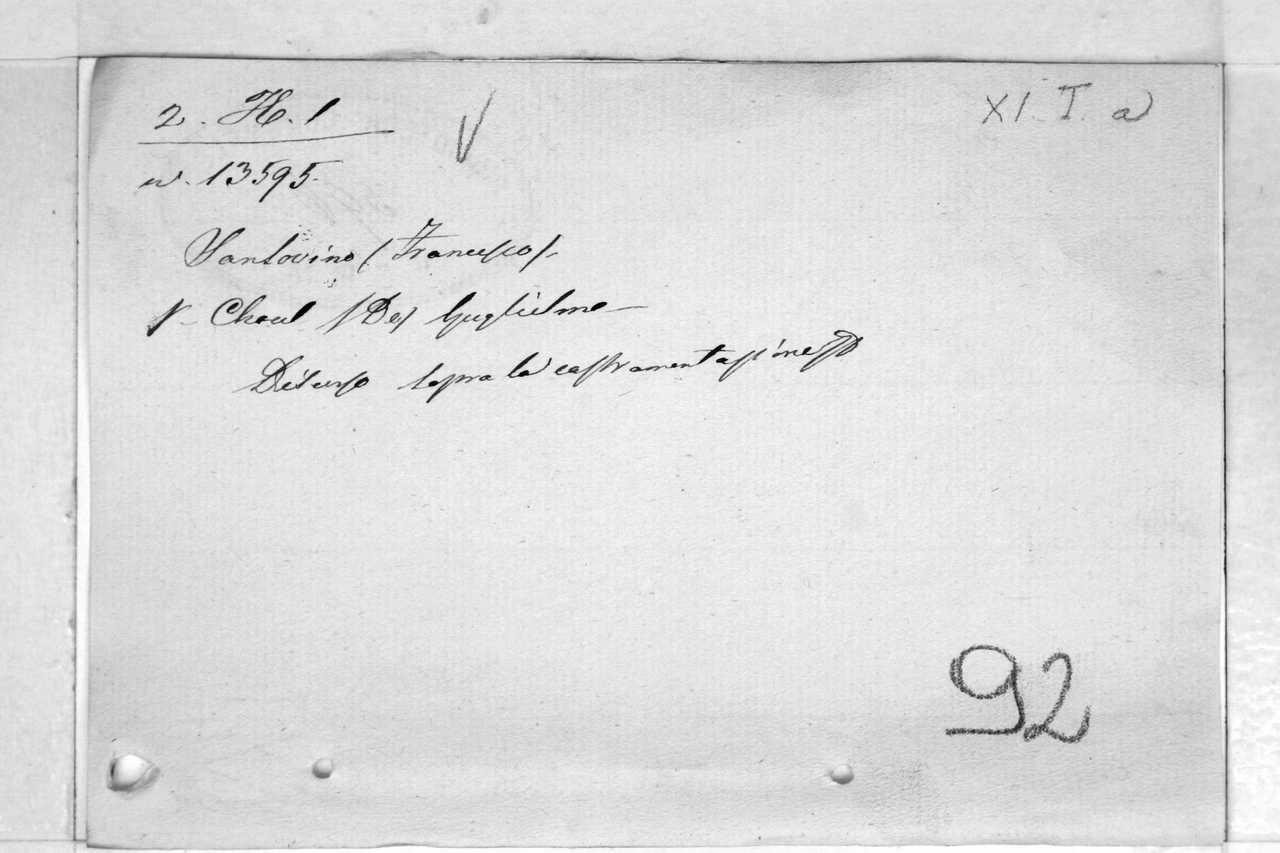 2. H. 1
XI. I. a
w. 13595.
Sansovino (Francesco).
v. Choul (Del) Guglielmo
Discorso sopra la castramentazione
92